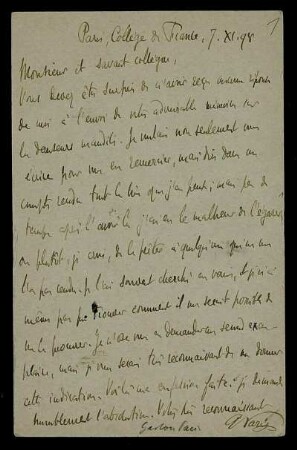 Paris, Collège de France, 7. XI. 98
Monsieur et savant collègue,
Vous devez être surpris de n'avoir reçu aucune réponse
de moi à l'envoi de votre admirable mémoire sur
les danseurs maudits. Je voulais non seulement vous
écrire pour vous en remercier, mais dans un
compte rendu tout le bien que j'en pense; mais peu de
temps après l'avoir lu j'ai eu le malheur de l'égarer,
ou plutôt, je crois, de le prêter à quelqu'un qui ne me
l'a pas rendu. Je l'ai souvent cherché en vain, et je n'ai
même pas pu trouver comment il me serait possible de
me le procurer. Je n'ose vous en demander un second exem-
plaire, mais je vous serais très reconnaissant de me donner
cette indication. Voilà ma confession faite: je demande
humblement l'absolution. Votre très reconnaissant
Gaston Paris
G. Paris